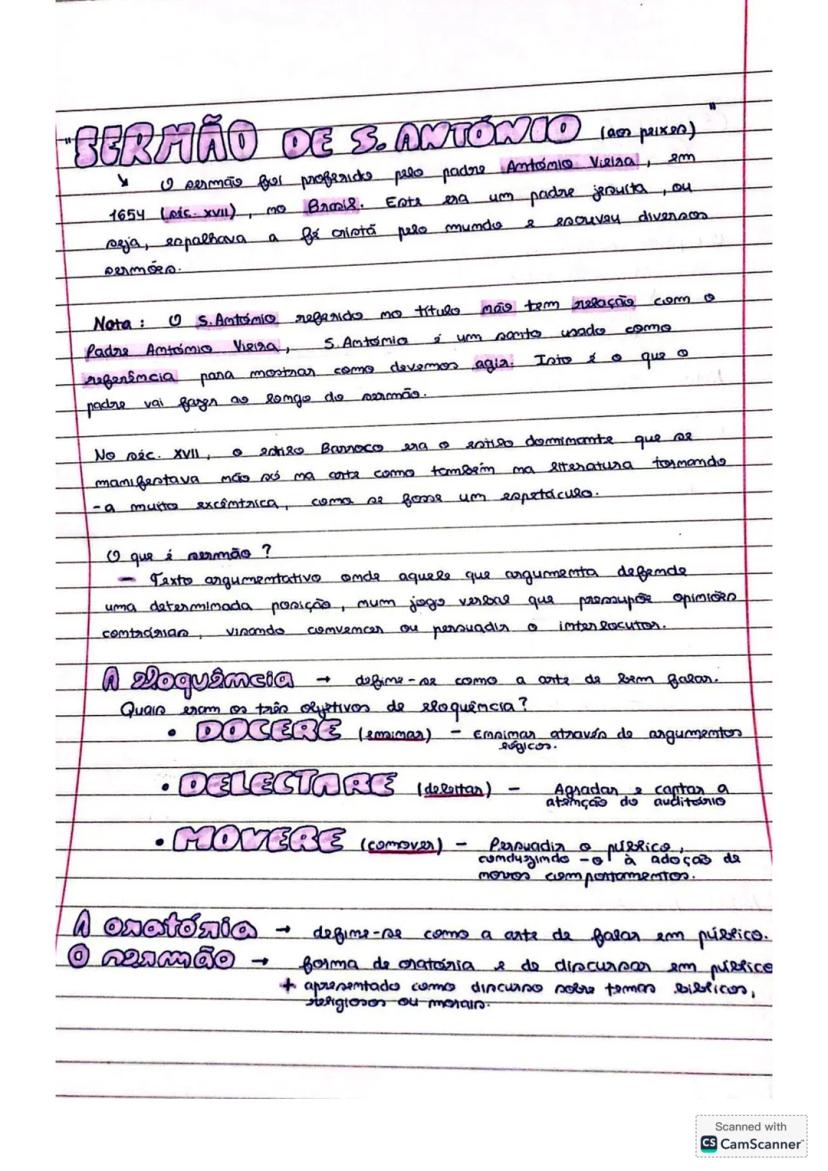 "SERMÃO DE S. ANTÓNIO (aos peixes)"
↳ O sermão foi proferido pelo padre António Vieira, em
1654 (séc. XVII), no Brasil. Este era um padre jesuíta, ou
seja, espalhava a fé cristã pelo mundo e escreveu diversos
sermões.
Nota: O S. António referido no título não tem relação com o
Padre António Vieira, S. António é um santo usado como
referência para mostrar como devemos agir. Isto é o que o
padre vai fazer ao longo do sermão.
No séc. XVII, o estilo Barroco era o estilo dominante que se
manifestava não só na arte como também na literatura tornando
-a muito excêntrica, como se fosse um espetáculo.
O que é sermão?
— Texto argumentativo onde aquele que argumenta defende
uma determinada posição, num jogo verbal que pressupõe opiniões
contrárias, visando convencer ou persuadir o interlocutor.
A eloquência → define-se como a arte de bem falar.
Quais eram os três objetivos de eloquência?
• DOCERE (ensinar) - Ensinar através de argumentos
lógicos.
• DELECTARE (deleitar) - Agradar e captar a
atenção do auditório
• MOVERE (comover) - Persuadir o público,
conduzindo-o à adoção de
novos comportamentos.
A oratória → define-se como a arte de falar em público.
O sermão → forma de oratória e de discursar em público
+ apresentado como discurso sobre temas bíblicos,
religiosos ou morais.
Scanned with
CS CamScanner